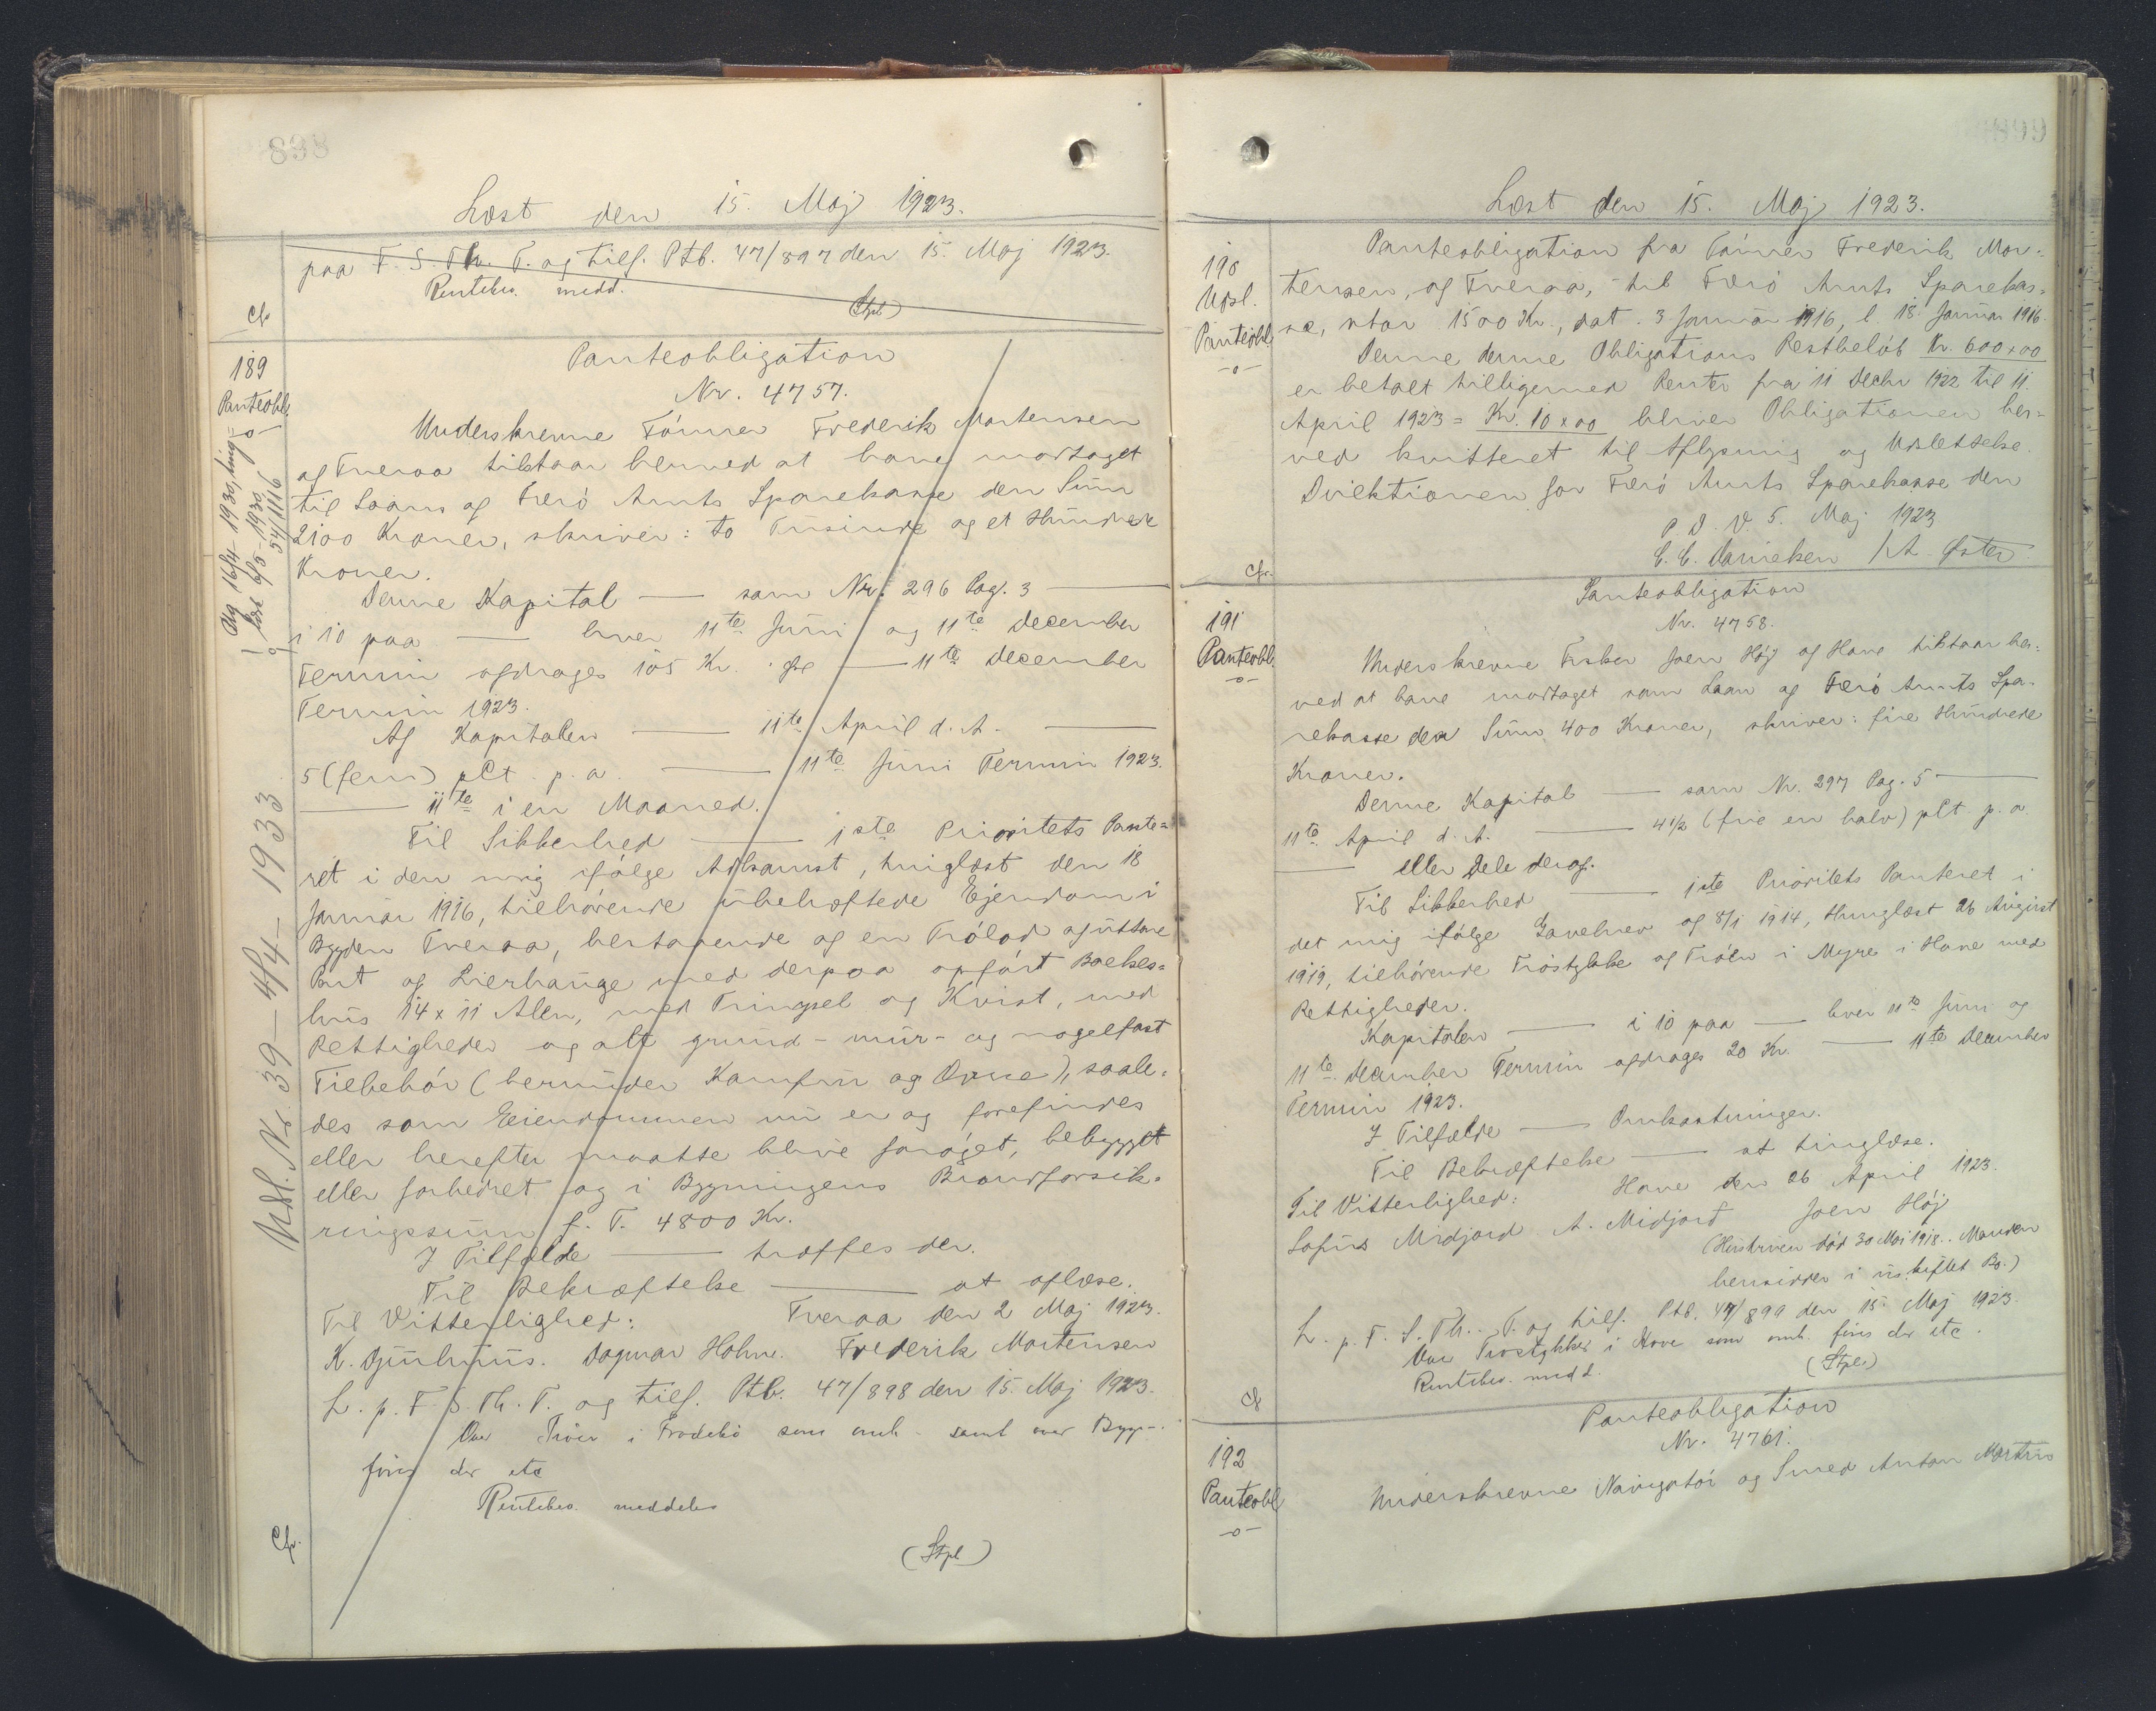 898
Læst den 15. Maj 1923.
paa F. S. Th. P. og tilf. Ptb. 47/897 den 15. Maj 1923.
Rentebev. medd.
(Stpl.)
Cfr
189
Panteobl.
-o-
Panteobligation
Nr. 4757.
Underskrevne Tømrer Frederik Mortensen
af Tveraa tilstaar herved at have modtaget
til Laans af Færø Amts Sparekasse den Sum
2100 Kroner, skriver: to Tusinde og et Hundrede
Kroner.
Denne Kapital — som Nr. 296 Pag. 3 —
i 10 paa — hver 11te Juni og 11te December
Termin afdrages 105 Kr. — 11te December
Termin 1923.
Af Kapitalen — 11te April d. A. —
5 (fem) pCt. p. a. — 11te Juni Termin 1923.
— 11te i en Maaned.
Til Sikkerhed — 1ste Prioritets Pante-
ret i den mig ifølge Adkomst, tinglæst den 18
Januar 1916, tilhørende ubehæftede Ejendom i
Bygden Tveraa, bestaaende af en Trølod
Part af Lierhauge med derpaa opført Boelses-
hus 14 x 11 Alen, med og Kvist, med
Rettigheder og alt grund- mur- og nagelfast
Tilbehør (herunder Komfur og Ovne), saale-
des som Eiendommen nu er og forefindes
eller herefter maatte blive forøget, bebygget
eller forbedret og i Bygningens Brandforsik-
ringssum f. T. 4800 Kr.
I Tilfælde — træffes der.
Til Bekræftelse — at oplæse.
Til Vitterlighed: Tveraa den 2 Maj 1923.
K. Djurhuus. Dagmar Holm. Frederik Mortensen
L. p. F. S. Th. P. og tilf. Ptb. 47/898 den 15. Maj 1923.
Ove Trøer i Frodebø som omh. samt over Bygn.
fins der etc
Rentebev. meddeles
(Stpl)
Cfr.
Udsl. Nr. 39 – 4/4 – 1933
899
Læst den 15. Maj 1923.
190
Udsl.
Panteobl.
-o-
Panteobligation fra Tømrer Frederik Mor-
tensen, af Tveraa, til Færø Amts Sparekas-
se, stor 1500 Kr., dat. 3 Januar 1916, l. 18. Januar 1916.
Denne denne Obligations Restbeløb Kr. 600x00
er betalt tilligemed Renter fra 11 Decbr 1922 til 11.
April 1923 = Kr. 10x00 bliver Obligationen her-
ved kvitteret til Aflysning og Udslettelse.
Direktionen for Færø Amts Sparekasse den
P. D. V. 5. Maj 1923
C. C. Danielsen / A. Øster.
Cfr.
191
Panteobl.
-o-
Panteobligation
Nr. 4758.
Underskrevne Fisker Joen Høj af Hove tilstaar her-
ved at have modtaget som Laan af Færø Amts Spa-
rekasse den Sum 400 Kroner, skriver: fire Hundrede
Kroner.
Denne Kapital — som Nr. 297 Pag. 5 —
11te April d. A. — 4 1/2 (fire en halv) pCt. p. a
— eller Dele deraf.
Til Sikkerhed — 1ste Prioritets Panteret i
det mig ifølge Gavebrev af 8/1 1914, tinglæst 26 August
1919, tilhørende Trøstykke af Trøen i Myre i Hove med
Rettigheder.
Kapitalen — i 10 paa — hver 11te Juni og
11te December Termin afdrages 20 Kr. — 11te December
Termin 1923.
I Tilfælde — Omkostninger.
Til Bekræftelse — at tinglæse.
Til Vitterlighed: Hove den 26 April 1923.
Sofus Midjord A. Midjord Joen Høj
(Hustruen død 30 Mai 1918. Manden
hensidder i uskiftet Bo.)
L. p. F. S. Th. P. og tilf. Ptb. 47/899 den 15. Maj 1923.
Ove Trøstykket i Hove som omh. fins der etc.
Rentebev. medd. (Stpl.)
Cfr
192
Panteobl
-o-
Panteobligation
Nr. 4761.
Underskrevne Navigatør og Smed Anton Martin